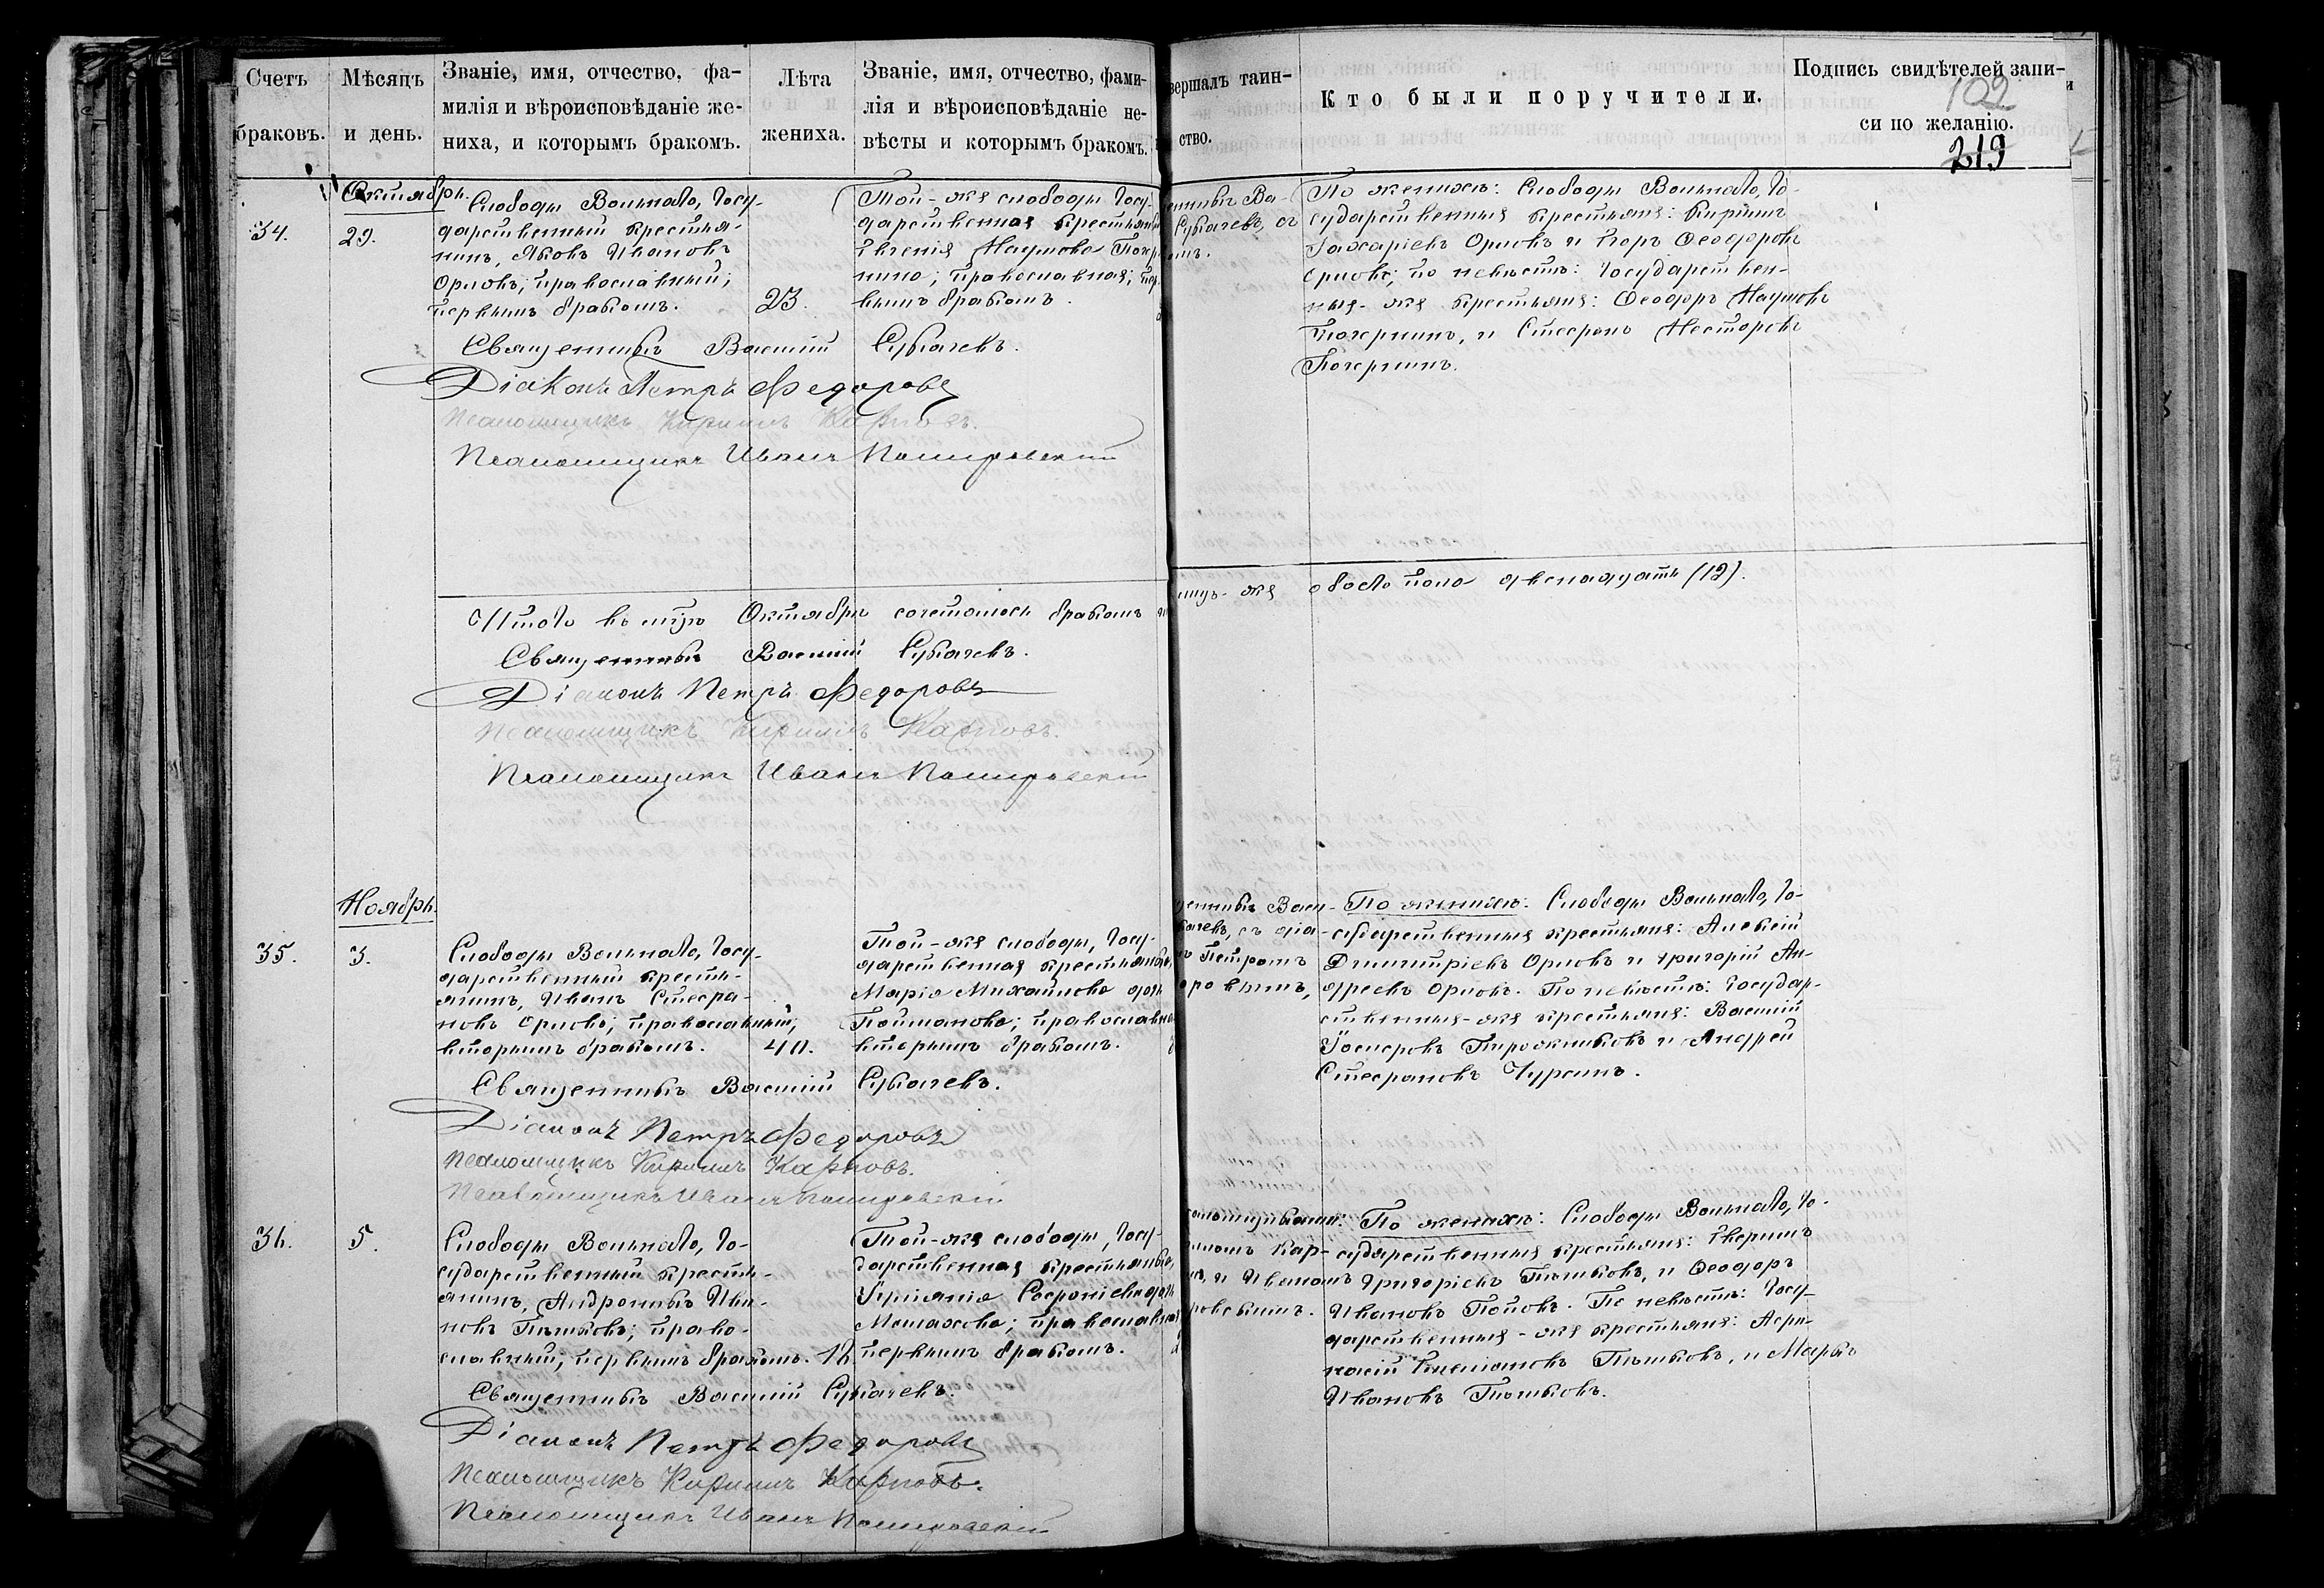 Счетъ
браковъ.
Мѣсяцъ
и день.
Званіе, имя, отчество, фа-
милія и вѣроисповѣданіе же-
ниха, и которымъ бракомъ.
Лѣта
жениха.
Званіе, имя, отчество, фами-
лія и вѣроисповѣданіе не-
вѣсты и которымъ бракомъ.
вершалъ таин-
ство.
Кто были поручители.
Подпись свидѣтелей запи-
си по желанію.
102
219
34.
Октябрь.
29.
Слободы Вольнаго, Госу-
дарственный крестья-
нинъ, Яковъ Ивановъ
Орловъ; православный;
первымъ бракомъ.
23.
Той-же слободы Госу-
дарственная крестьян
Евгенія Наумова
православная; пер
вымъ бракомъ.
Ва-
Сукачевъ, съ
По женихѣ: Слободы Вольнаго, Го-
сударственныя крестьяне: Кириллъ
Захаріевъ Орловъ и Егоръ Ѳеодоровъ
Орловъ; по невѣстѣ: Государствен-
ныя-же крестьяне: Ѳеодоръ Наумовъ
и Стефанъ Несторовъ
Священникъ Василій Сукачевъ.
Діаконъ Петръ Федоровъ
Псаломщикъ Кириллъ Карповъ.
Псаломщикъ Иванъ
Итого въ Октябрѣ сочеталось бракомъ
же обоего пола двенадцать (12).
Священникъ Василій Сукачевъ.
Діаконъ Петръ Федоровъ
Псаломщикъ Кириллъ Карповъ.
Псаломщикъ Иванъ
Ноябрь.
35.
3.
Слободы Вольнаго, Госу-
дарственный кресть-
янинъ, Иванъ Стефа-
новъ Орловъ; православный;
вторымъ бракомъ.
40.
Той-же слободы, Госу-
дарственная крестьянка,
Марія Михайлова
православна
вторымъ бракомъ.
Васи-
качевъ, съ діа-
Петромъ
оровымъ,
По женихѣ: Слободы Вольнаго, Го-
сударственныя крестьяне: Алексій
Димитріевъ Орловъ и Григорій Ан-
дреевъ Орловъ. По невѣстѣ: Государ-
ственныя-же крестьяне: Василій
и Андрей
Стефановъ Чурсинъ.
Священникъ Василій Сукачевъ.
Діаконъ Петръ Федоровъ
Псаломщикъ Кириллъ Карповъ.
Псаломщикъ Иванъ
36.
5.
Слободы Вольнаго, Го-
сударственный кресть-
янинъ, Андроникъ Ива-
новъ Пѣшковъ; право-
славный; первымъ бракомъ.
Той-же слободы, Госу-
дарственная крестьянка,
Софроніева дочь
православная
первымъ бракомъ.
аломщиками:
Кар-
и Иваномъ
По женихѣ: Слободы Вольнаго, Го-
сударственныя крестьяне:
Григоріевъ Пѣшковъ, и Ѳеодоръ
Ивановъ Поповъ. По невѣстѣ: Госу-
дарственныя-же крестьяне: Аѳа-
насій Пѣшковъ, и Маркъ
Ивановъ Пѣшковъ.
Священникъ Василій Сукачевъ.
Діаконъ Петръ Федоровъ
Псаломщикъ Кириллъ Карповъ.
Псаломщикъ Иванъ